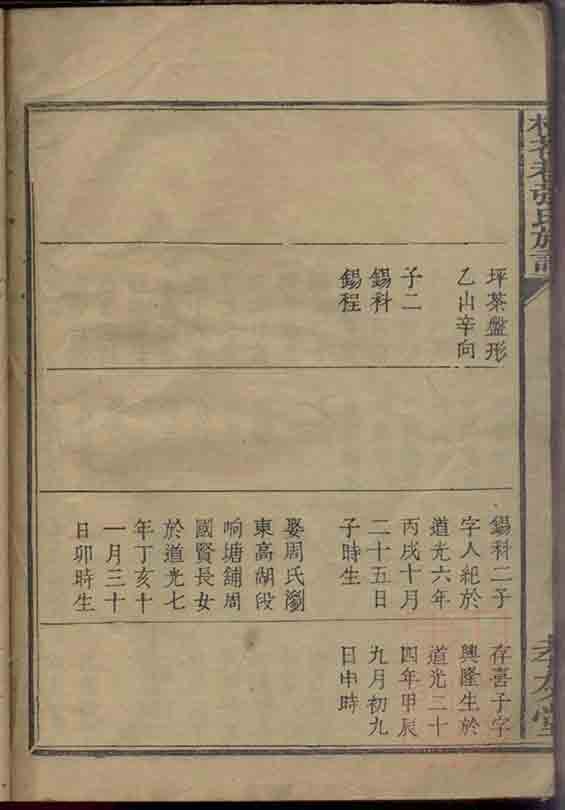 張氏族譜
孝友堂
坪茶盤形
乙山辛向
子二
錫科
錫程
錫科二子
字人紀於
道光六年
丙戌十月
二十五日
子時生
娶周氏瀏
東高湖段
响塘鋪周
國賢長女
於道光七
年丁亥十
一月三十
日卯時生
存喜子字
興隆生於
道光二十
四年甲辰
九月初九
日申時